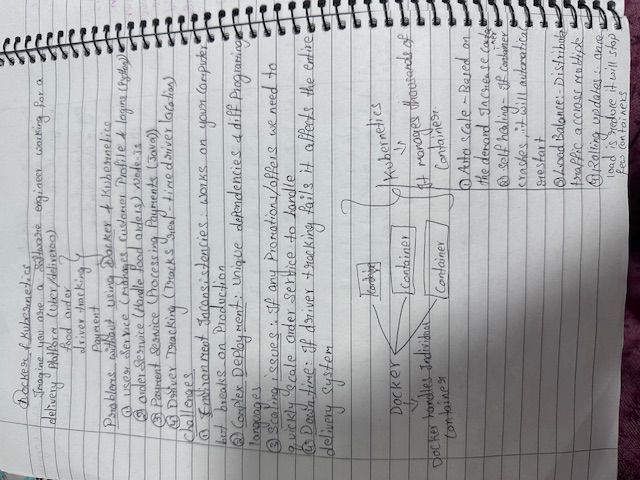 Docker & Kubernetics
Imagine you are a Software engineer working for a
delivery Platform (Uber/deliveroo)
food order
driver tracking
Payment
Problems without using Docker & Kubernetics
① user Service (Manages Customer Profile & logins (Python)
② order Service (Handle food orders) Node-js
③ Payment Service (Processing Payments (Java))
④ Driver Tracking (Tracks real-time driver location)
Challenges
① Environment Inconsistencies: works on your Computer
but breaks on Production
② Complex Deployment: Unique dependencies & diff Programing
languages
③ Scaling issues: If any Promotions/offers we need to
quickly scale order service to handle
④ Downtime: If driver tracking fails it affects the entire
delivery system
Docker
Docker handles Individual
Container
Container
Container
Container
Kubernetics
It manages thousands of
Container.
① Auto scale - Based on
the demand Increase container
② Self healing - If container
crashes, it will automatical
restart
③ Load Balance:- Distribute
traffic accross multiple
④ Rolling updates:- once
load is reduce it will stop
few containers